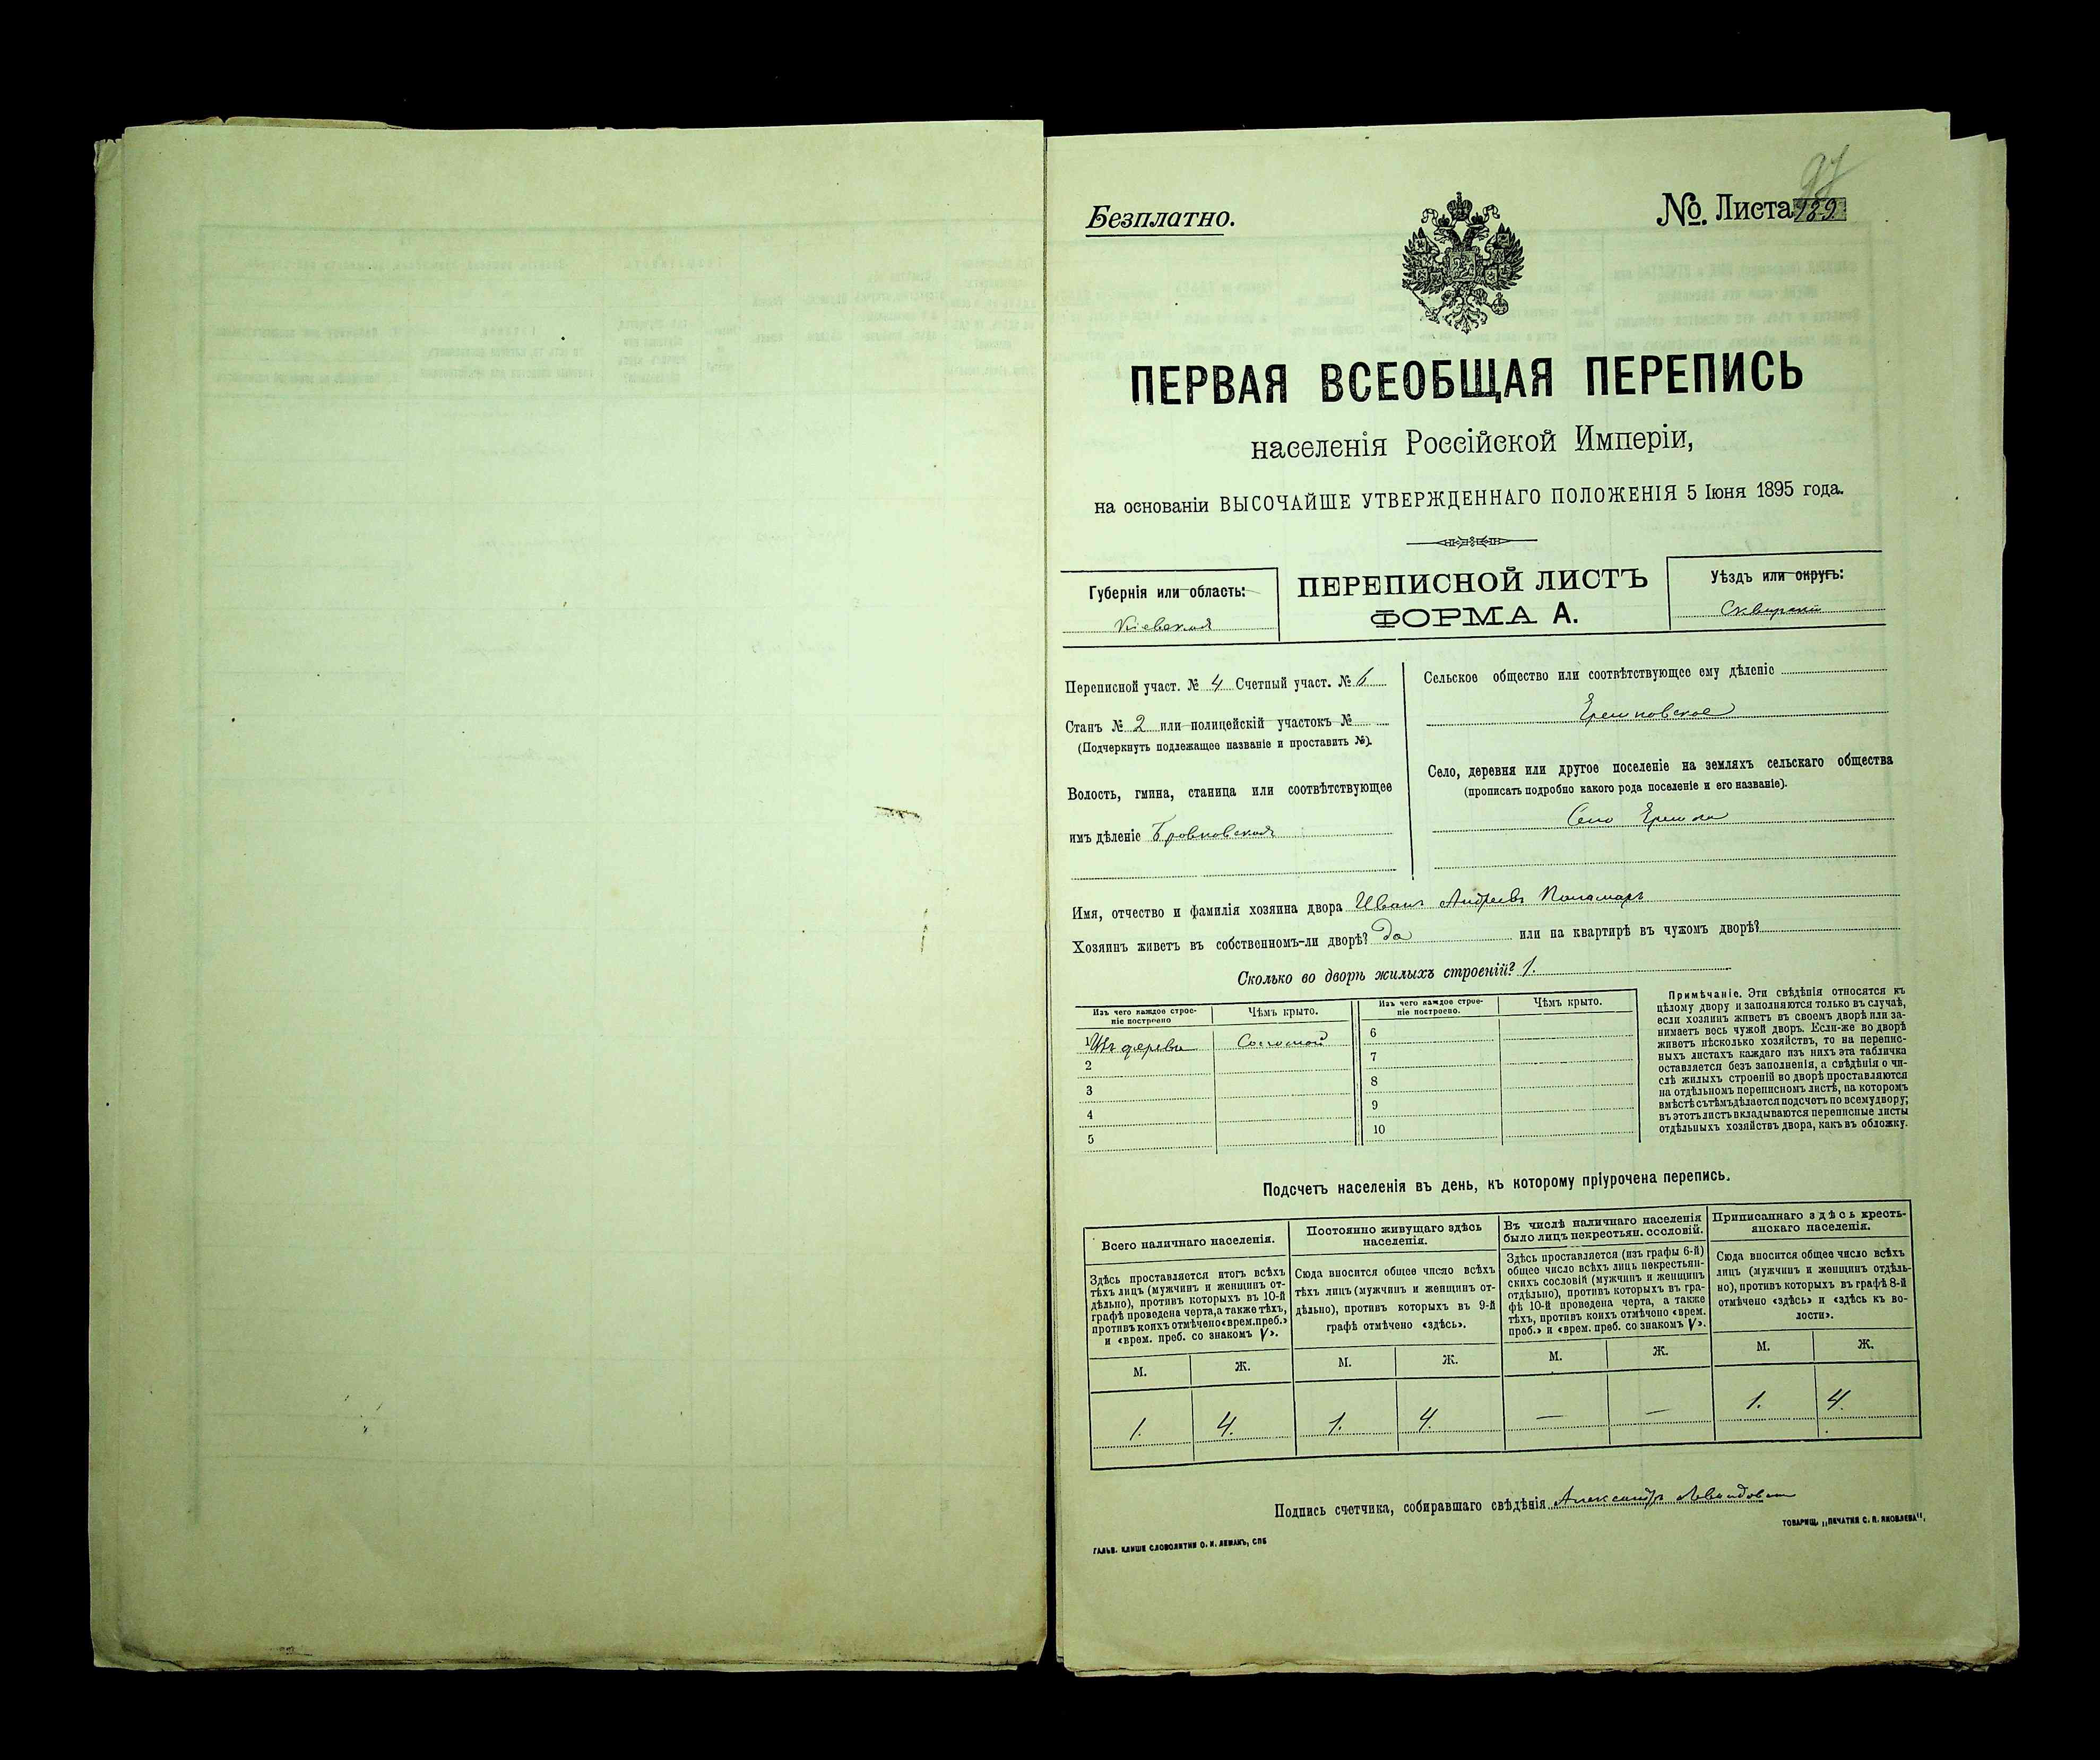 97
Безплатно.
№. Листа 139
ПЕРВАЯ ВСЕОБЩАЯ ПЕРЕПИСЬ
населенія Россійской Имперіи,
на основаніи ВЫСОЧАЙШЕ УТВЕРЖДЕННАГО ПОЛОЖЕНІЯ 5 Іюня 1895 года.
Губернія или область:
Кіевская
ПЕРЕПИСНОЙ ЛИСТЪ
ФОРМА А.
Уѣздъ или округъ:
Сквирскій
Переписной участ. № 4 Счетный участ. № 6
Станъ № 2 или полицейскій участокъ №
(Подчеркнуть подлежащее названіе и проставить №).
Волость, гмина, станица или соотвѣтствующее
имъ дѣленіе Бровковская
Сельское общество или соотвѣтствующее ему дѣленіе
Ерешковское
Село, деревня или другое поселеніе на земляхъ сельскаго общества
(прописать подробно какого рода поселеніе и его названіе).
Село Ерешки
Имя, отчество и фамилія хозяина двора Иванъ Андреевъ Паламарь
Хозяинъ живетъ въ собственномъ-ли дворѣ? да или на квартирѣ въ чужомъ дворѣ?
Сколько во дворѣ жилыхъ строеній? 1.
Изъ чего каждое строе-
ніе построено
Чѣмъ крыто.
Изъ чего каждое строе-
ніе построено.
Чѣмъ крыто.
1 Изъ дерева Соломой
2
3
4
5
6
7
8
9
10
Примѣчаніе. Эти свѣдѣнія относятся къ
цѣлому двору и заполняются только въ случаѣ,
если хозяинъ живетъ въ своемъ дворѣ или за-
нимаетъ весь чужой дворъ. Если-же во дворѣ
живетъ нѣсколько хозяйствъ, то на перепис-
ныхъ листахъ каждаго изъ нихъ эта табличка
оставляется безъ заполненія, а свѣдѣнія о чи-
слѣ жилыхъ строеній во дворѣ проставляются
на отдѣльномъ переписномъ листѣ, на которомъ
вмѣстѣ съ тѣмъ дѣлается подсчетъ по всему двору;
въ этотъ листъ вкладываются переписные листы
отдѣльныхъ хозяйствъ двора, какъ въ обложку.
Подсчетъ населенія въ день, къ которому пріурочена перепись.
Всего наличнаго населенія.
Здѣсь проставляется итогъ всѣхъ
тѣхъ лицъ (мужчинъ и женщинъ от-
дѣльно), противъ которыхъ въ 10-й
графѣ проведена черта, а также тѣхъ,
противъ коихъ отмѣчено «врем. преб.»
и «врем. преб. со знакомъ V».
Постоянно живущаго здѣсь
населенія.
Сюда вносится общее число всѣхъ
тѣхъ лицъ (мужчинъ и женщинъ от-
дѣльно), противъ которыхъ въ 9-й
графѣ отмѣчено «здѣсь».
Въ числѣ наличнаго населенія
было лицъ некрестьян. сословій.
Здѣсь проставляется (изъ графы 6-й)
общее число всѣхъ лицъ некрестьян-
скихъ сословій (мужчинъ и женщинъ
отдѣльно), противъ которыхъ въ гра-
фѣ 10-й проведена черта, а также
тѣхъ, противъ коихъ отмѣчено «врем.
преб.» и «врем. преб. со знакомъ V».
Приписаннаго здѣсь кресть-
янскаго населенія.
Сюда вносится общее число всѣхъ
лицъ (мужчинъ и женщинъ отдѣль-
но), противъ которыхъ въ графѣ 8-й
отмѣчено «здѣсь» и «здѣсь къ во-
лости».
М. Ж. М. Ж. М. Ж. М. Ж.
1. 4. 1. 4. — — 1. 4.
Подпись счетчика, собиравшаго свѣдѣнія Александръ Левандовскій
ГАЛЬВ. КЛИШЕ СЛОВОЛИТНИ О. И. ЛЕМАНЪ, СПБ
ТОВАРИЩ. „ПЕЧАТНЯ С. П. ЯКОВЛЕВА“,